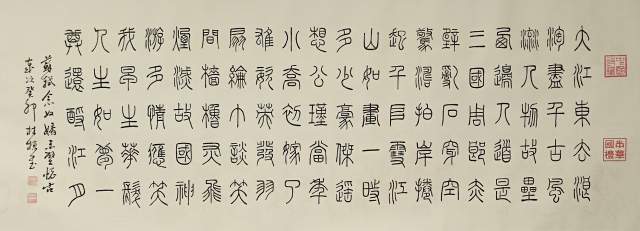 大江東去浪
淘盡千古風
流人物故壘
西邊人道是
三國周郎赤
壁亂石穿空
驚濤拍岸捲
起千堆雪江
山如畫一時
多少豪傑遙
想公瑾當年
小喬初嫁了
雄姿英發羽
扇綸巾談笑
間檣櫓灰飛
煙滅故國神
遊多情應笑
我早生華髮
人生如夢一
尊還酹江月
蘇軾念奴嬌赤壁懷古
歲次癸卯